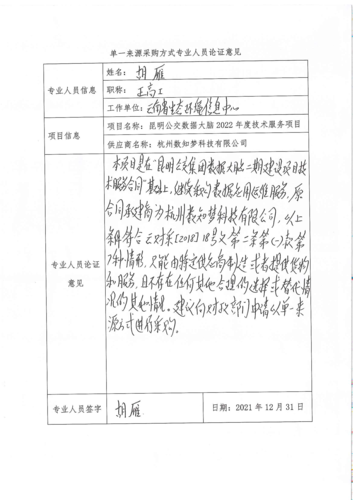 单一来源采购方式专业人员论证意见
专业人员信息
姓名：胡雁
职称：正高工
工作单位：云南省生态环境信息中心
项目信息
项目名称：昆明公交数据大脑 2022 年度技术服务项目
供应商名称：杭州数知梦科技有限公司
专业人员论证
意见
本项目是在"昆明公交集团数据大脑二期建设项目技
术服务合同"基础上，继续采购数据应用运维服务，原
合同承建商为杭州数知梦科技有限公司，以上
条件符合云财采[2018]18号文第二条第(一)款第
7种情形，只能由特定供应商制造或者提供货物
和服务，且不存在任何其他合理的选择或替代情
况的其他情况。建议向财政部门申请以单一来
源方式进行采购。
专业人员签字
胡雁
日期：2021 年 12 月 31 日